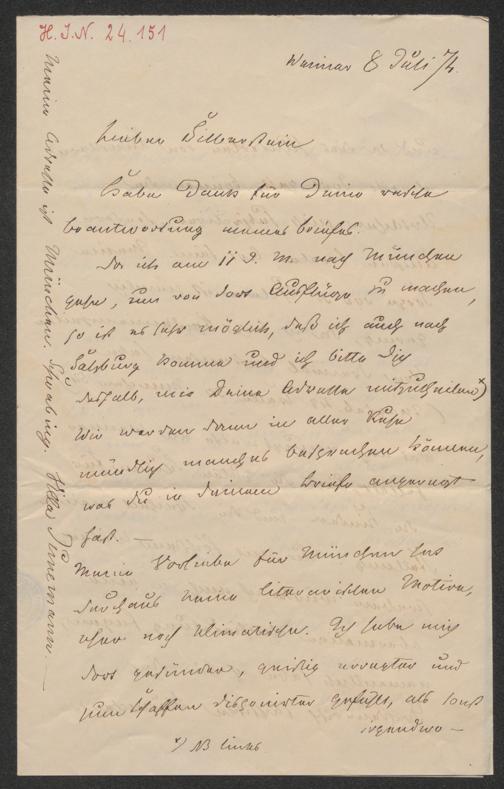 H. I. N. 24.151
Weimar 8 Juli 74.
Lieber Silberstein
Habe Dank für Deine rasche
beantwortung meines briefes.
Da ich am 11 d. M. nach München
gehe, um von dort Ausflüge zu machen,
so ist es sehr möglich, daß ich auch nach
Salzburg komme und ich bitte Dich
deshalb, mir Deine Adresse mitzutheilen x)
Wir werden dann in aller Ruhe
mündlich manches besprechen können,
was du in deinem briefe angeregt
hast. —
Meine Vorliebe für München hat
durchaus keine literarischen Motive,
eher noch klimatische. Ich habe mich
dort gesünder, geistig erregter und
zum Schaffen disponirter gefühlt, als sonst
irgendwo —
x) NB links
Meine Adresse ist München. Schwabing. Villa —